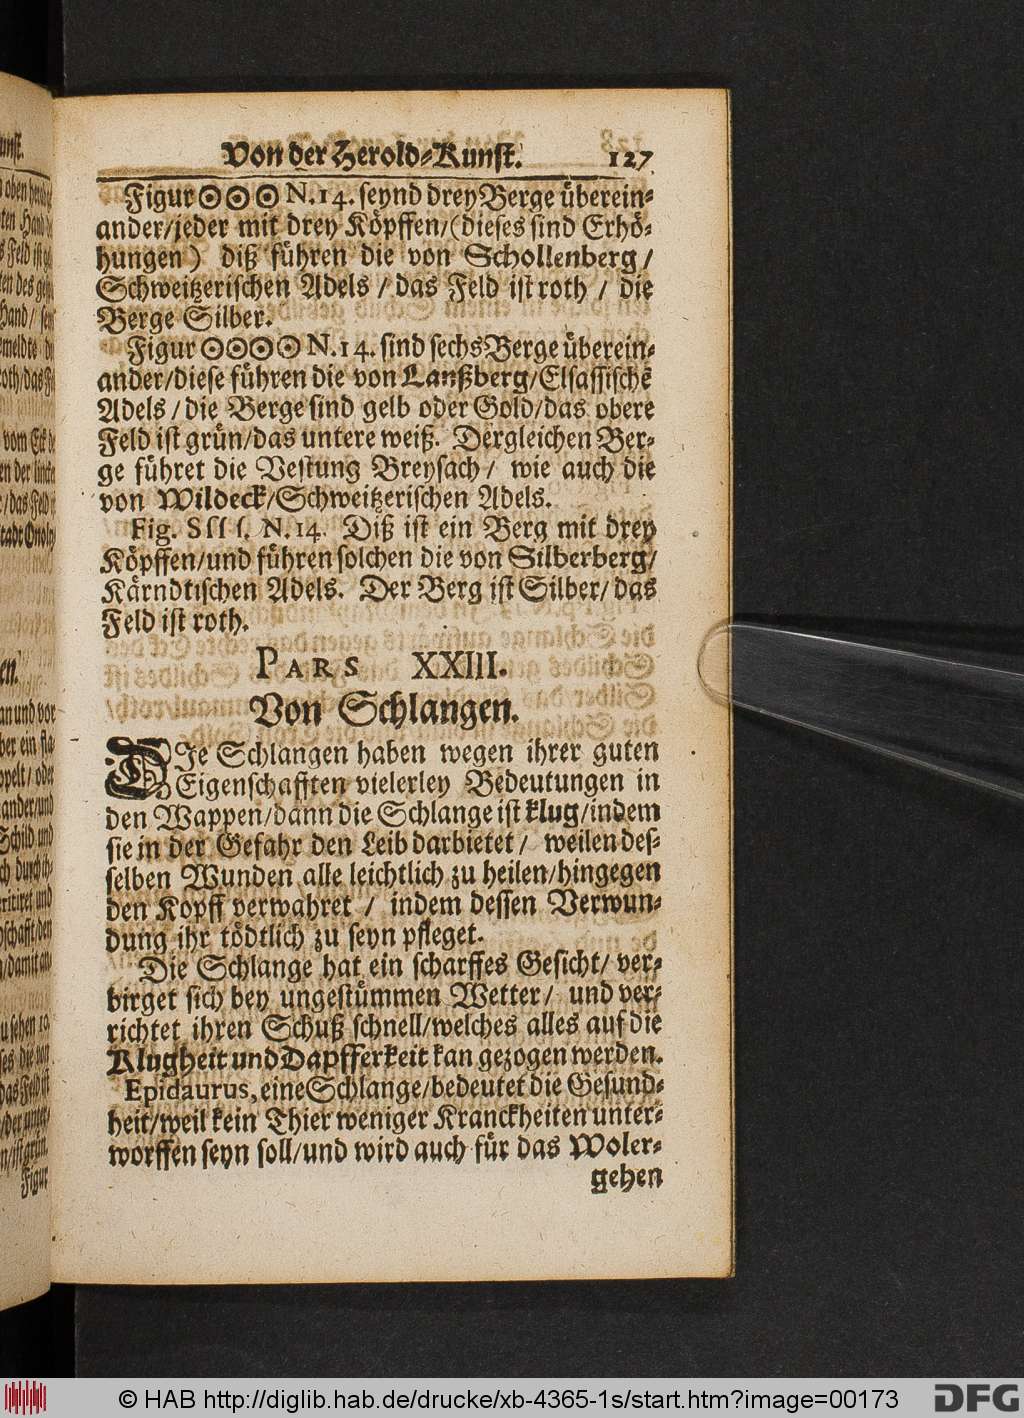 Von der Herold-Kunst. 127
Figur ⨀⨀⨀ N. 14. seynd drey Berge überein-
ander/jeder mit drey Köpffen/(dieses sind Erhö-
hungen) diß führen die von Schollenberg/
Schweitzerischen Adels / das Feld ist roth / die
Berge Silber.
Figur ⨀⨀⨀⨀ N. 14. sind sechs Berge überein-
ander/diese führen die von Lanßberg/Elsassischẽ
Adels / die Berge sind gelb oder Gold/das obere
Feld ist grün/das untere weiß. Dergleichen Ber-
ge führet die Vestung Breysach/ wie auch die
von Wildeck/Schweitzerischen Adels.
Fig. Sſſſ. N. 14. Diß ist ein Berg mit drey
Köpffen/und führen solchen die von Silberberg/
Kärndtischen Adels. Der Berg ist Silber/ das
Feld ist roth.
PARS XXIII.
Von Schlangen.
DIe Schlangen haben wegen ihrer guten
Eigenschafften vielerley Bedeutungen in
den Wappen/dann die Schlange ist klug/indem
sie in der Gefahr den Leib darbietet / weilen des-
selben Wunden alle leichtlich zu heilen/hingegen
den Kopff verwahret / indem dessen Verwun-
dung ihr tödtlich zu seyn pfleget.
Die Schlange hat ein scharffes Gesicht/ ver-
birget sich bey ungestümmen Wetter/ und ver-
richtet ihren Schuß schnell/welches alles auf die
Klugheit und Dapfferkeit kan gezogen werden.
Epidaurus, eine Schlange/bedeutet die Gesund-
heit/weil kein Thier weniger Kranckheiten unter-
worffen seyn soll/und wird auch für das Woler-
gehen
© HAB http://diglib.hab.de/drucke/xb-4365-1s/start.htm?image=00173
DFG